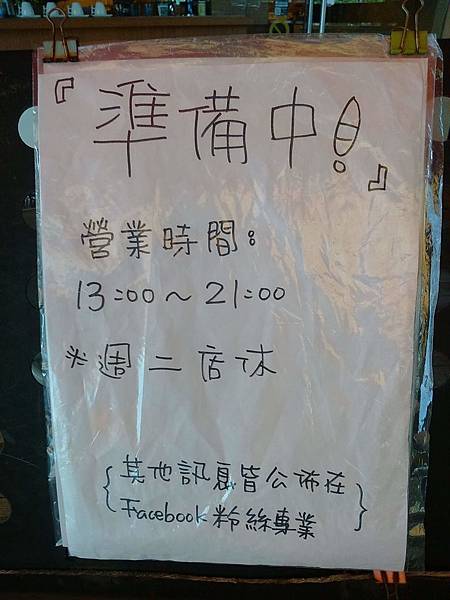 『準備中!』
營業時間:
13:00～21:00
※週二店休
{其他訊息皆公佈在
Facebook粉絲專業}